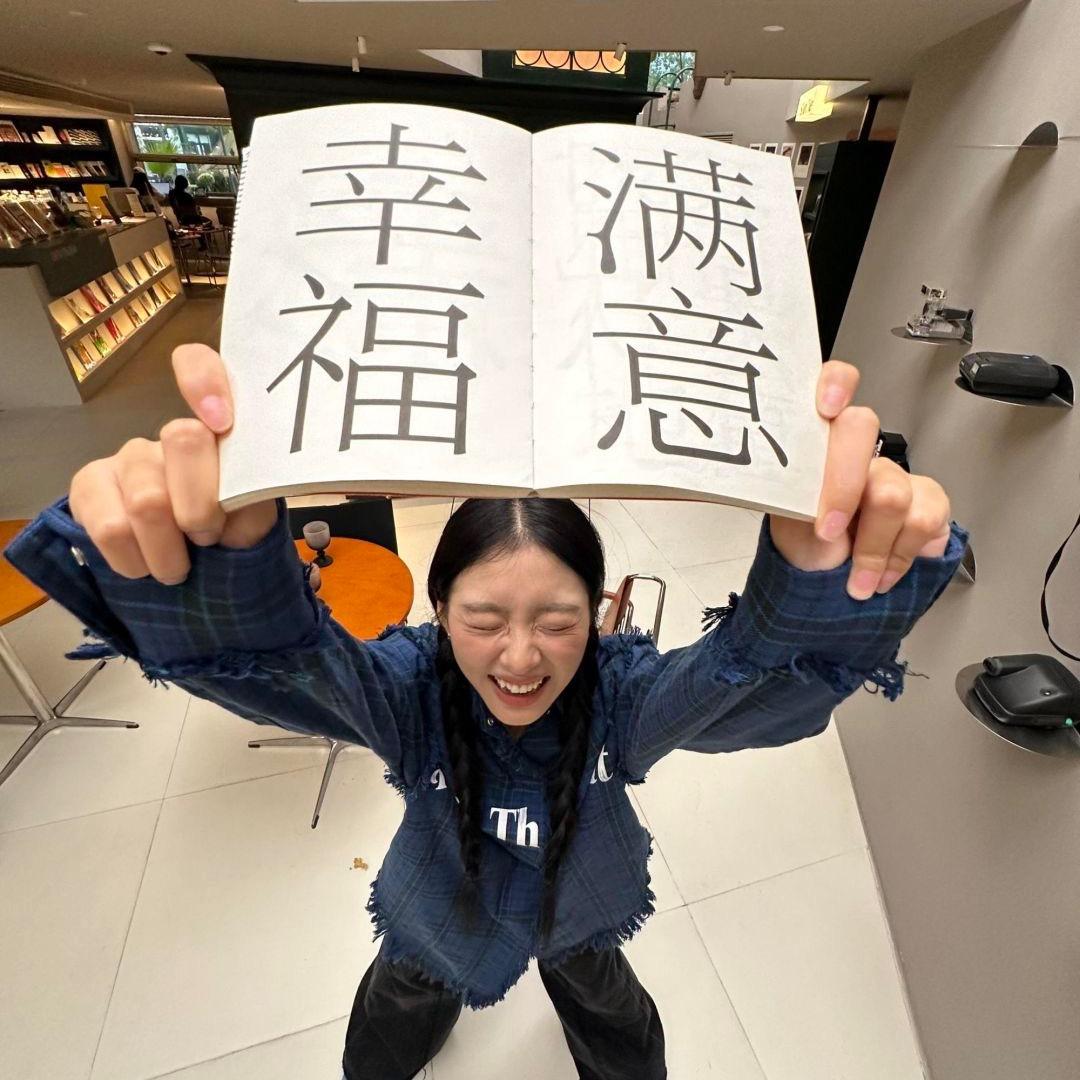 幸满
福意
Th